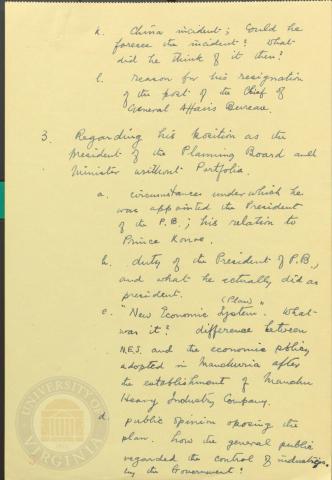 k. China incident; Could he
foresee the incident? What
did he think of it then?
l. reason for his resignation
of the post of the Chief of
General Affairs Bureau.
3. Regarding his position as the
president of the Planning Board and
Minister without Portfolio.
a. circumstances under which he
was appointed the President
of the P.B.; his relation to
Prince Konoe.
b. duty of the President of P.B.,
and what he actually did as
president.
(Plan)
c. "New Economic System." What
was it? difference between
N.E.S. and the economic policy
adopted in Manchuria after
the establishment of Manchu
Heavy Industry Company.
d. public opinion opposing the
plan. how the general public
regarded the control of industries
by the Government?
UNIVERSITY OF VIRGINIA